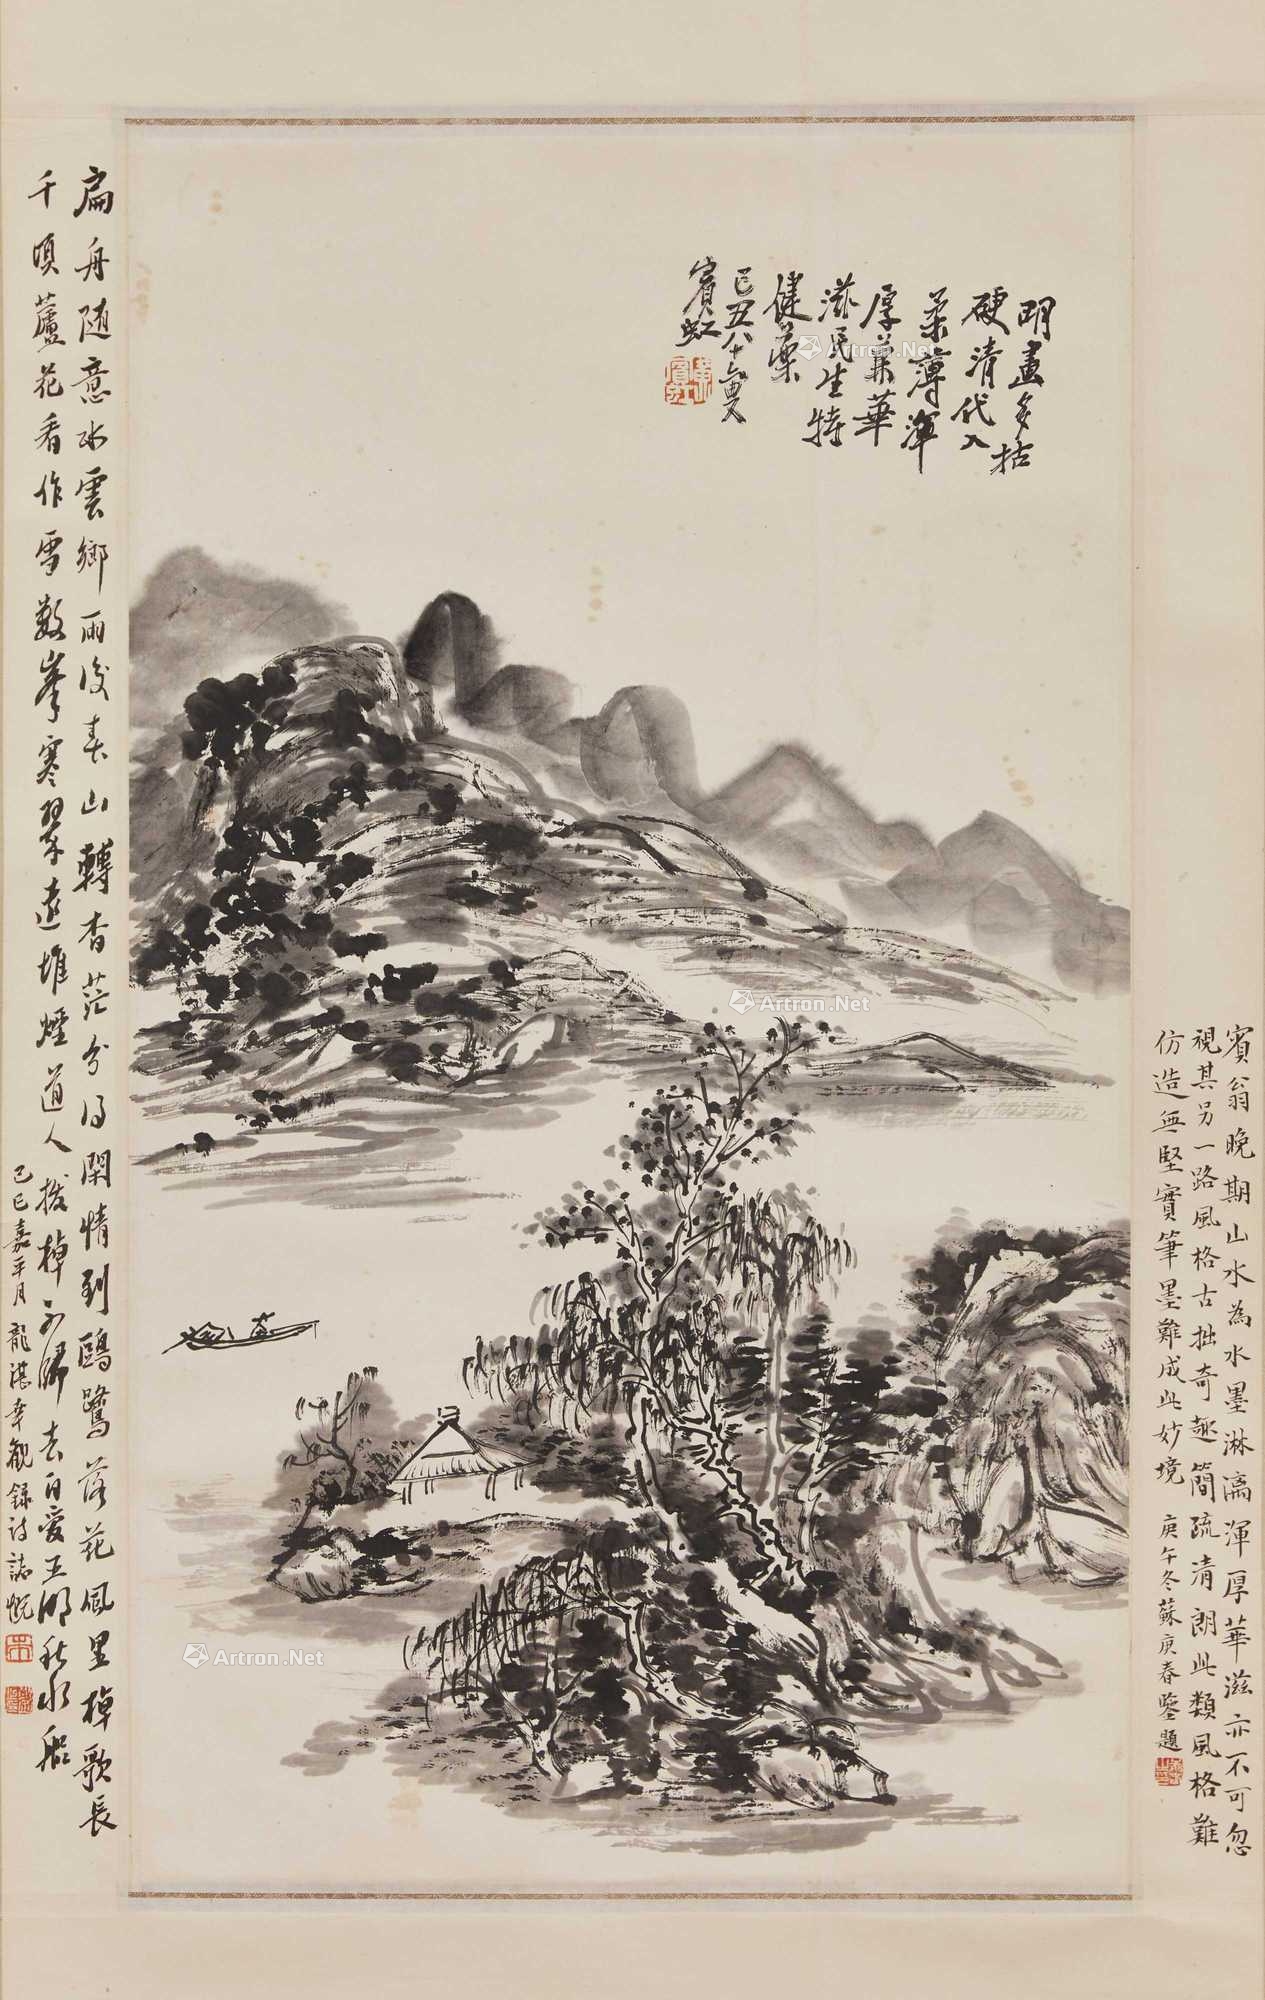 明畫多枯
硬清代入
柔薄渾
厚兼華
滋民生特
健藥
己丑八十六叟
賓虹
賓翁晚期山水為水墨淋漓渾厚華滋亦不可忽
視其另一路風格古拙奇趣簡疏清朗此類風格難
仿造無堅實筆墨難成此妙境
庚午冬蘇庚春鑒題
扁舟隨意水雲鄉雨後春山轉杳茫分得閑情到鷗鷺落花風里棹歌長
千頃蘆花看作雪數峯寒翠遠堆煙道人撥棹不歸去自愛玉湖秋水船
己巳嘉平月龍湛幸觀錄詩誌
Artron.Net
Artron.Net
Artron.Net
Artron.Net